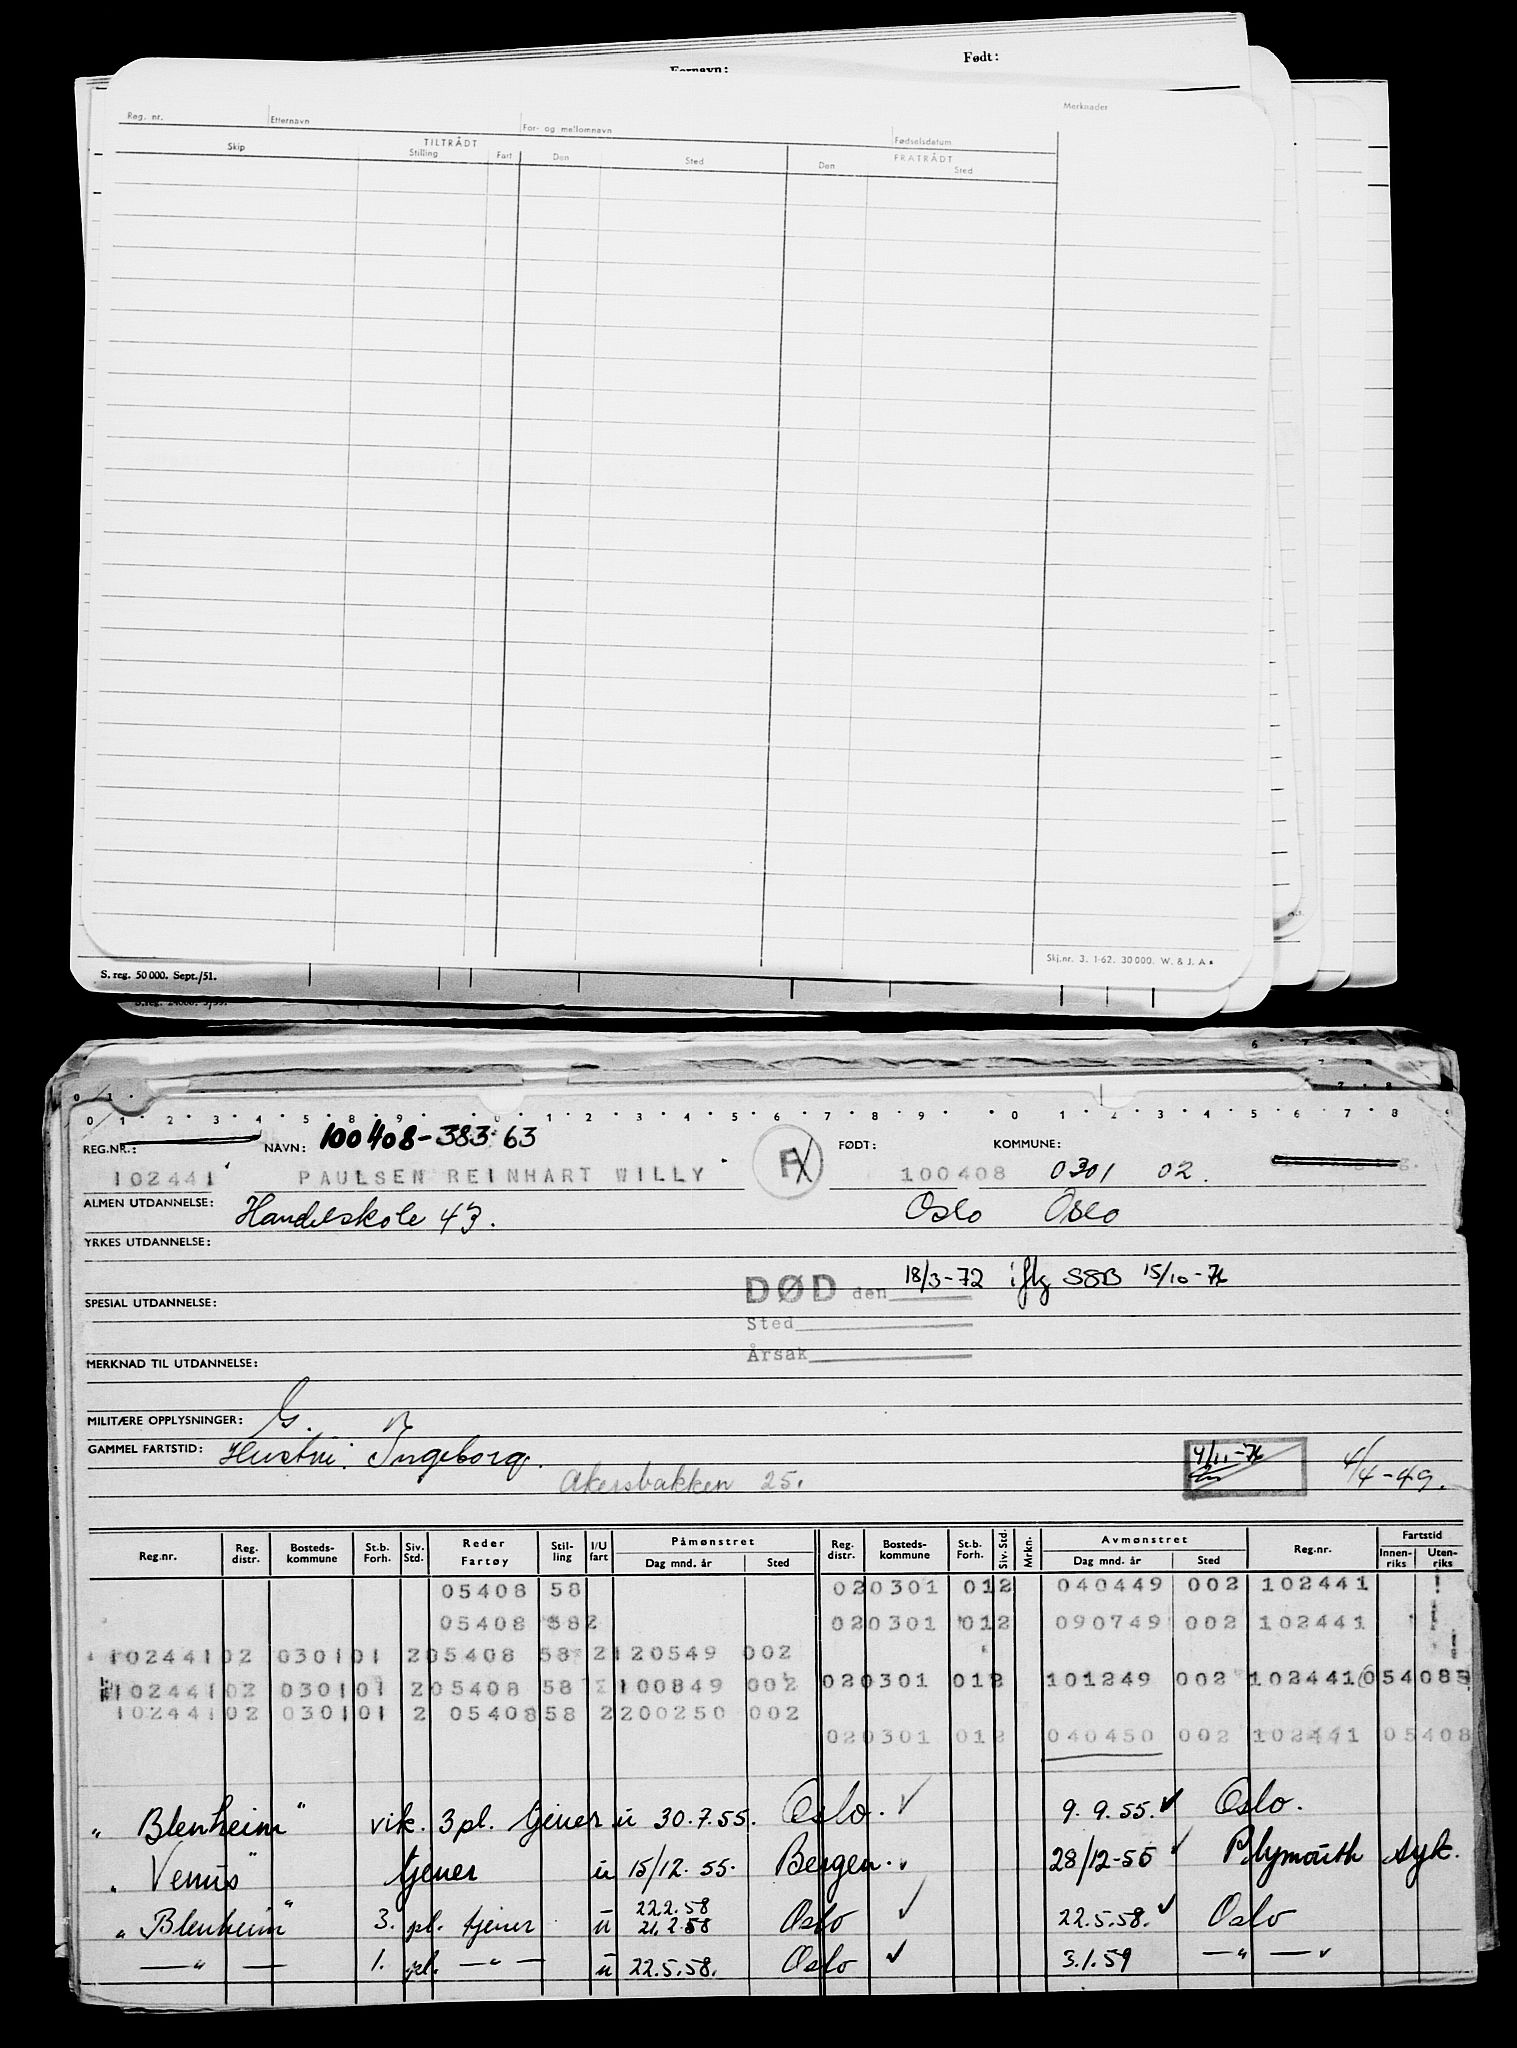 Født:
Fornavn:
Reg. nr. Etternavn For- og mellomnavn Fødselsdatum Merknader
Skip TILTRÅDT FRATRÅDT
Stilling Fart Den Sted Den Sted
Skj.nr. 3. 1-62. 30 000. W. & J. A.
S. reg. 50 000. Sept./51.
0 1 2 3 4 5 8 9 0 1 2 3 4 5 6 7 8 9 0 1 2 3 4 5 6 7 8 9
REG.NR.: NAVN: 100408-383 63 FØDT: KOMMUNE:
102441 PAULSEN REINHART WILLY 100408 0301 02.
ALMEN UTDANNELSE: Handelskole 43. Oslo Oslo
YRKES UTDANNELSE:
DØD den 18/3-72 iflg SSB 15/10-76
SPESIAL UTDANNELSE:
Sted
Årsak
MERKNAD TIL UTDANNELSE:
MILITÆRE OPPLYSNINGER: G. n
GAMMEL FARTSTID: Hustru: Ingeborg. 4/11-76 4/4-49.
Akersbakken 25.
Reg.nr. Reg. distr. Bosteds- kommune St.b. Forh. Siv. Std. Reder Fartøy Stil- ling I/U fart Påmønstret Dag mnd. år Sted Reg. distr. Bosteds- kommune St.b. Forh. Siv. Std. Mrkn. Avmønstret Dag mnd. år Sted Reg.nr. Fartstid Innen- riks Uten- riks
05408 58 020301 012 040449 002 102441
05408 582 020301 012 090749 002 102441
102441 02 030101 2 05408 58 2 120549 002
102441 02 030101 2 05408 58 2 100849 002 020301 012 101249 002 102441 05408
102441 02 030101 2 05408 58 2 200250 002
020301 012 040450 002 102441 05408
"Blenheim" vik. 3 pl. tjener u 30.7.55. Oslo. 9.9.55. Oslo.
"Venus" tjener u 15/12.55. Bergen. 28/12-55 Plymouth syk.
22.2.58
"Blenheim" 3. pl. tjener u 21.2.58 Oslo 22.5.58. Oslo
— " — 1. pl. — " — u 22.5.58. Oslo 3.1.59 — " —